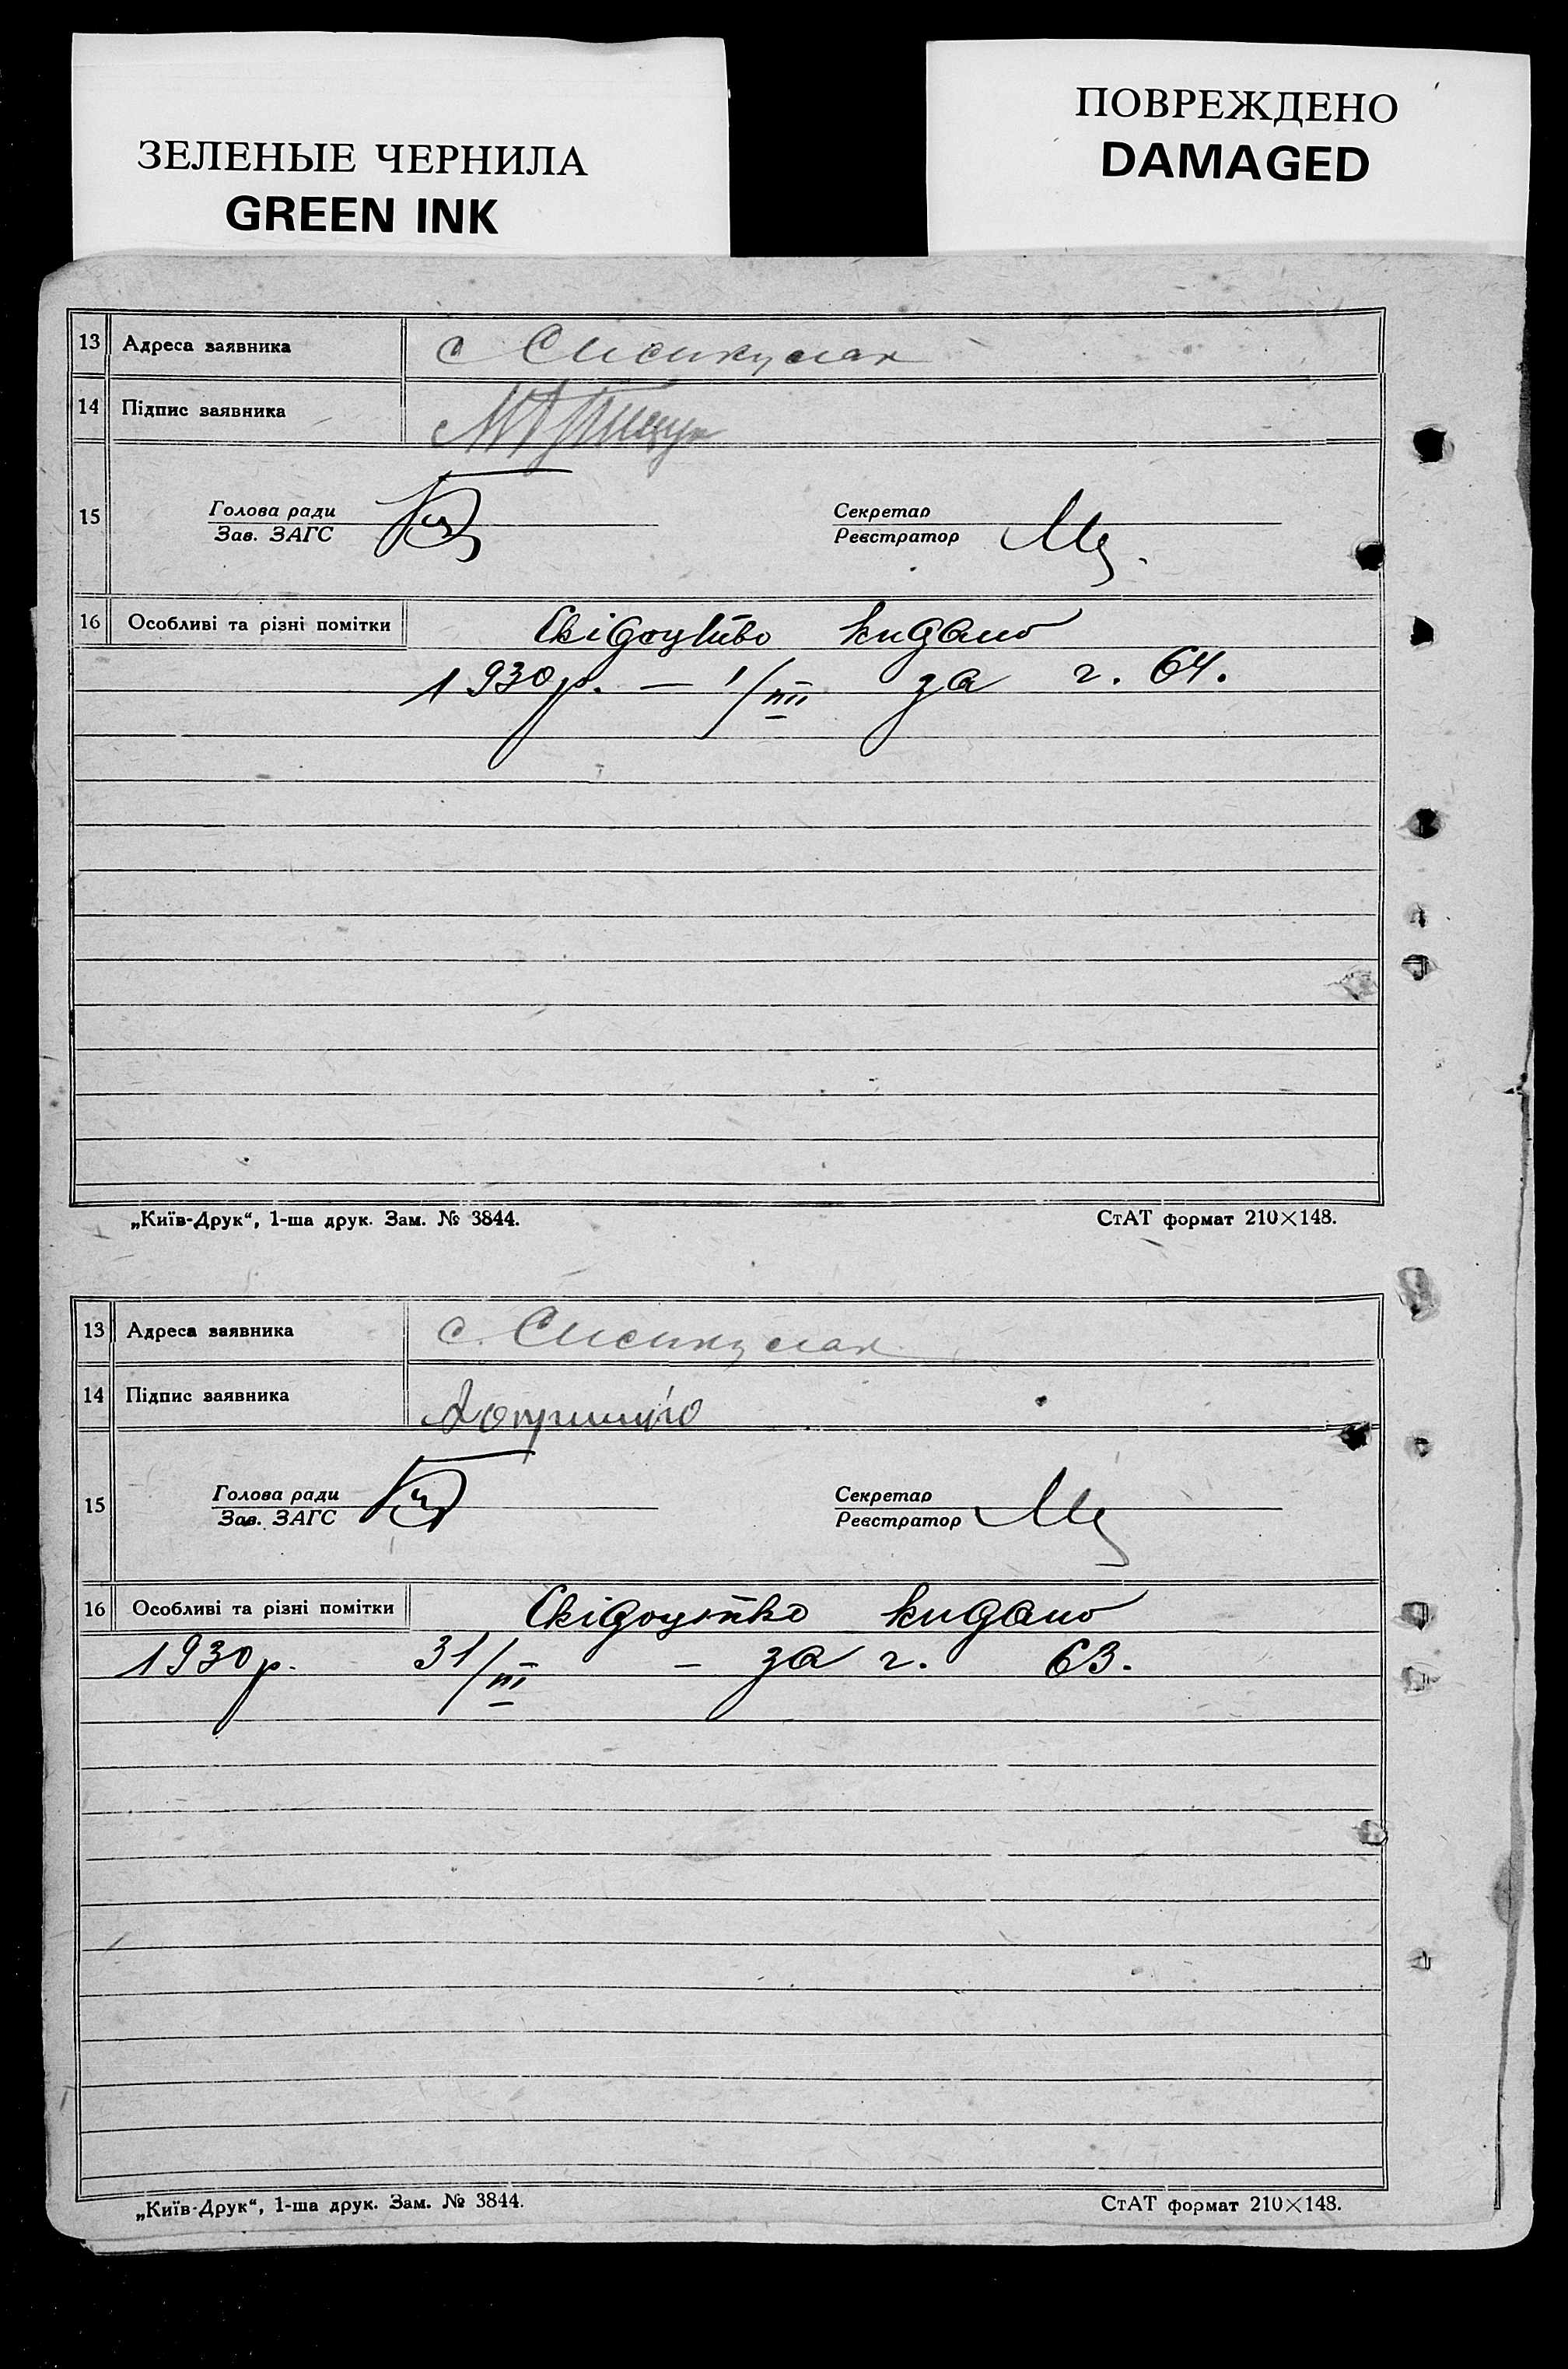 ЗЕЛЕНЫЕ ЧЕРНИЛА
GREEN INK
ПОВРЕЖДЕНО
DAMAGED
13 Адреса заявника с
14 Підпис заявника
15 Голова ради Секретар
Зав. ЗАГС Реєстратор
16 Особливі та різні помітки Свідоцтво видано
1930р. — 1/III за г. 64.
„Київ-Друк“, 1-ша друк. Зам. № 3844. СтАТ формат 210×148.
13 Адреса заявника с.
14 Підпис заявника
15 Голова ради Секретар
Зав. ЗАГС Реєстратор
16 Особливі та різні помітки Свідоцтво видано
1930р. 31/III — за г. 63.
„Київ-Друк“, 1-ша друк. Зам. № 3844. СтАТ формат 210×148.